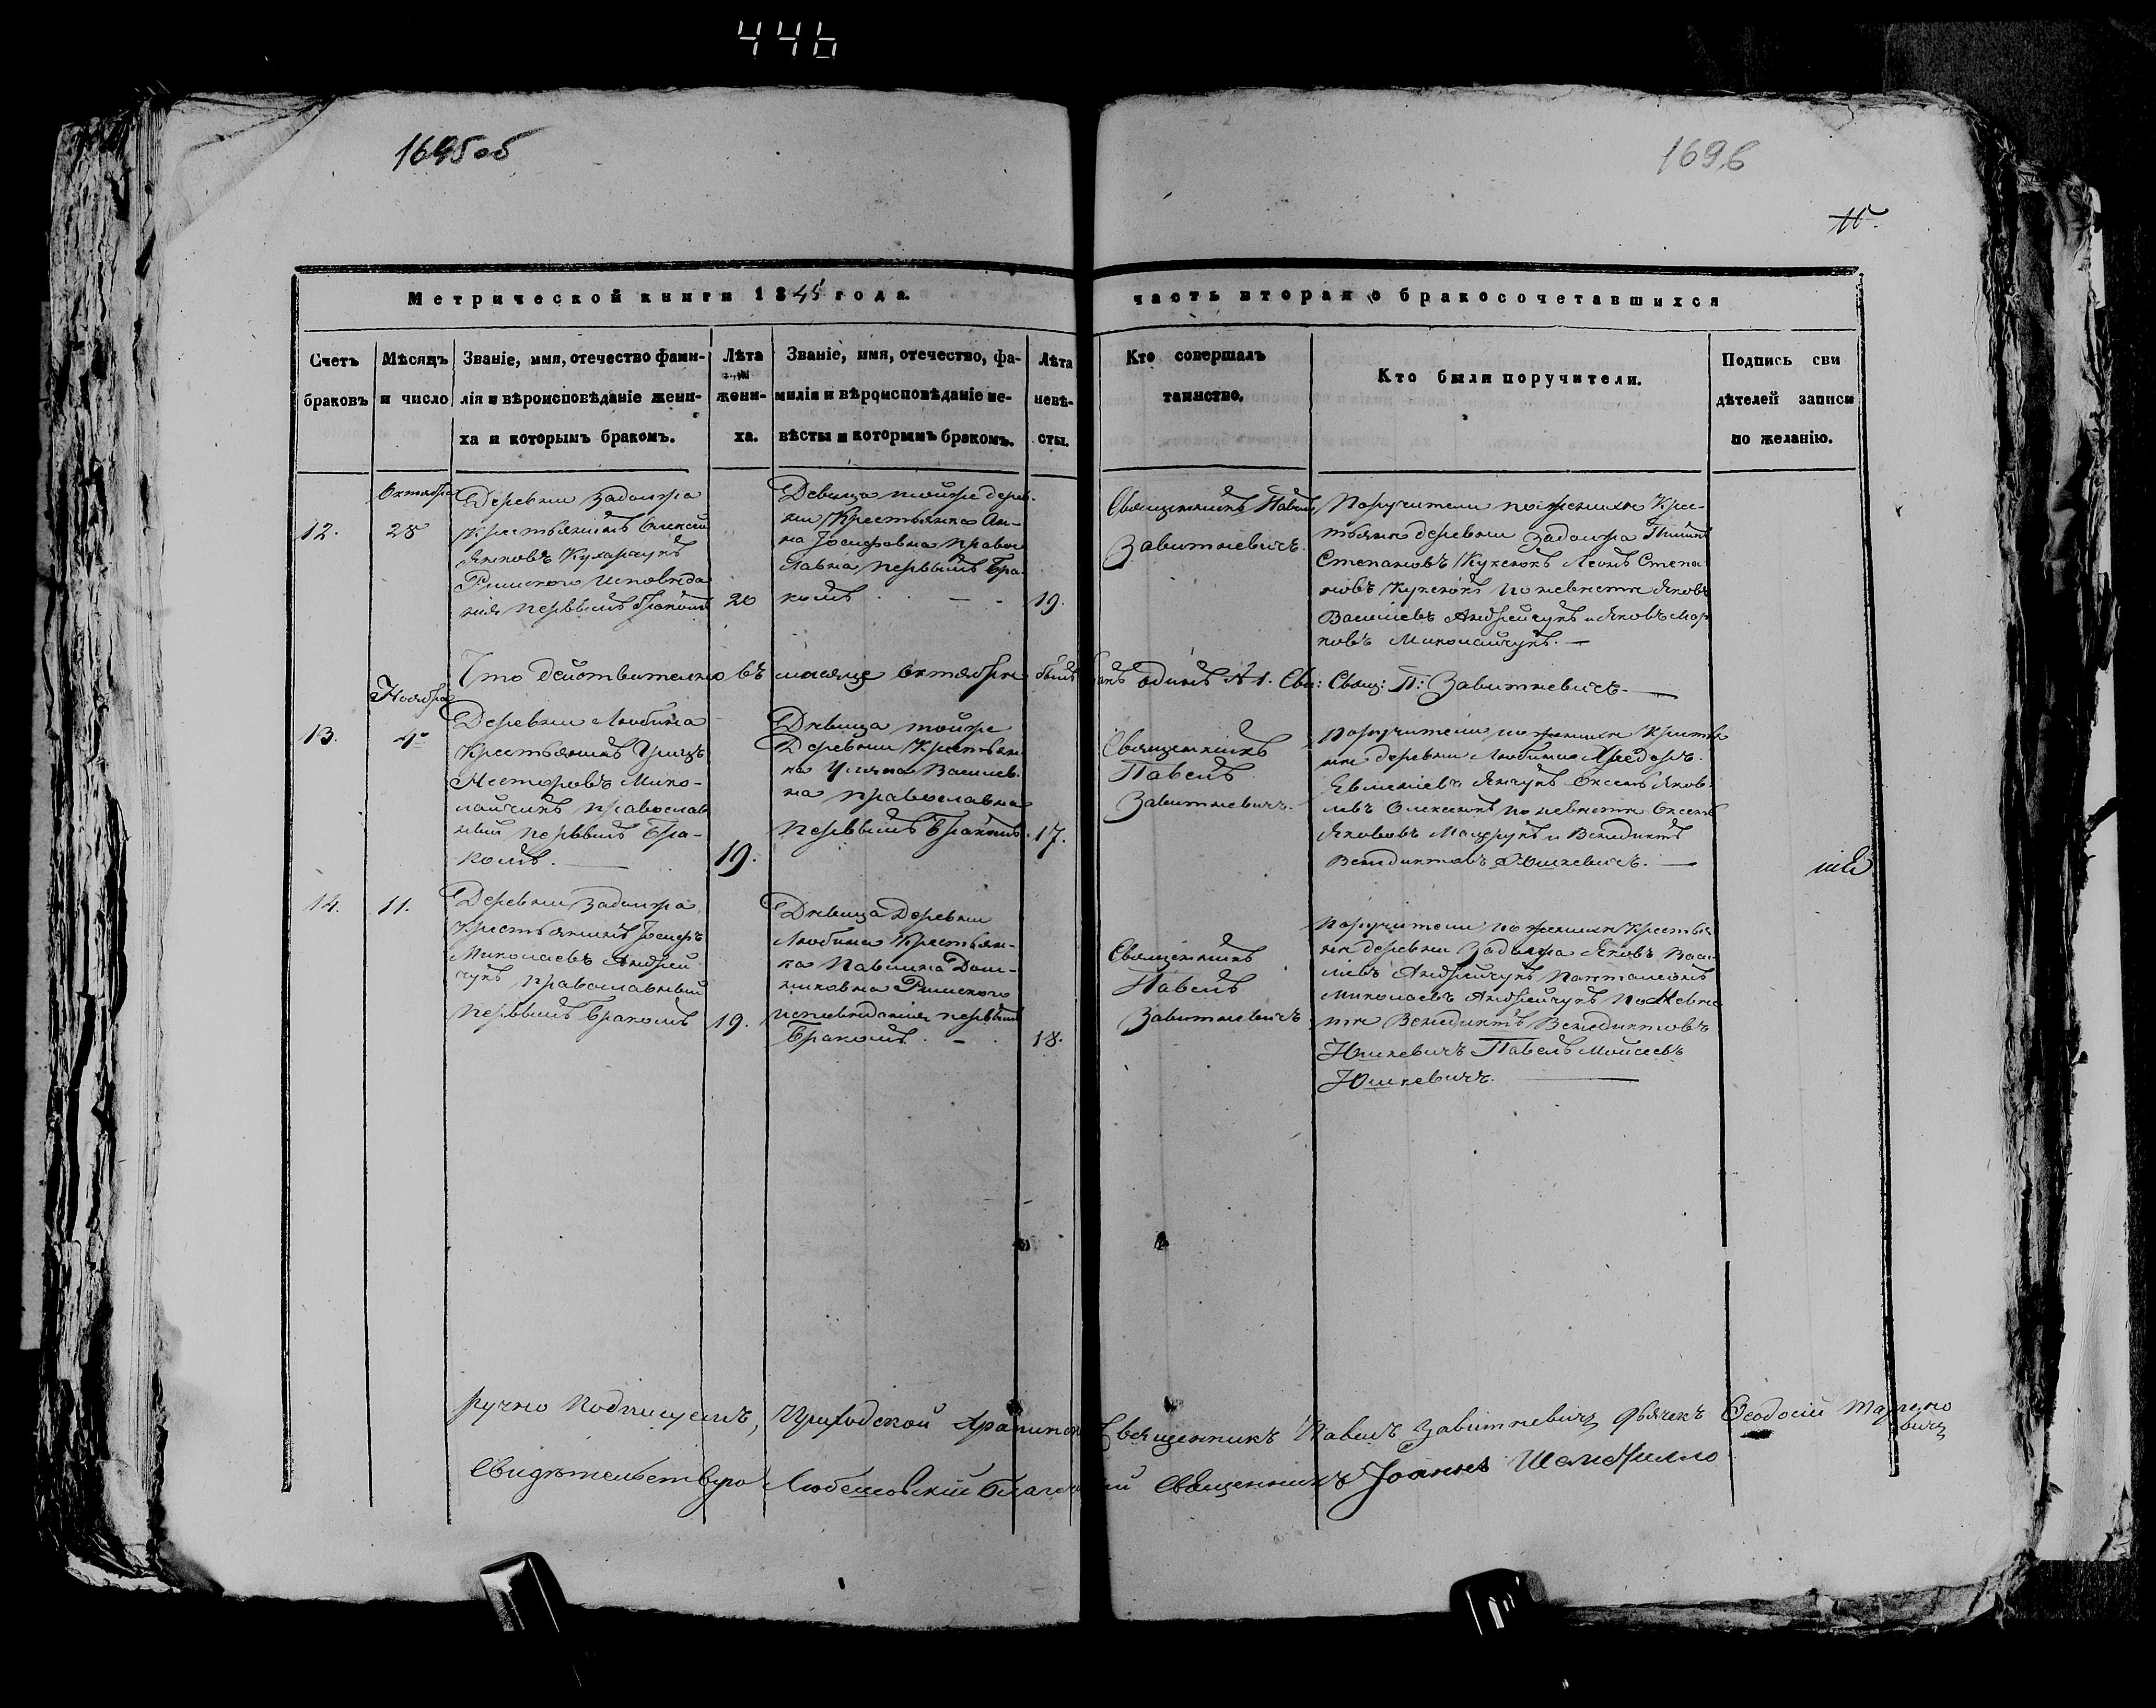 446
1695об
1696
Метрической книги 1845 года.
часть вторая о бракосочетавшихся
Счетъ браковъ
Мѣсяцъ и число
Званіе, имя, отечество фами-
лія и вѣроисповѣданіе жени-
ха и которымъ бракомъ.
Лѣта
жени-
ха.
Званіе, имя, отечество, фа-
милія и вѣроисповѣданіе не-
вѣсты и которымъ бракомъ.
Лѣта
невѣ-
сты.
Кто совершалъ
таинство.
Кто были поручители.
Подпись сви
дѣтелей записи
по желанію.
12.
Октября
28
Деревни Задолжа
Крестьянинъ Алексей
Янковъ Кухарчукъ
Римского исповѣда
нія первымъ бракомъ
20
Девица тойже дерев-
ни Крестьянка Ан-
на Іосифовна право
славна первымъ бра-
комъ
19.
Священникъ Павелъ
Завитневичъ.
Поручители по женихѣ Крес-
тьяне деревни Задолжа
Степановъ Кухенокъ Леонъ Степа
новъ Кухенокъ по невѣстѣ Яковъ
Василіевъ Андрейчукъ и Яковъ Мар
ковъ Миколайчукъ.
Что действительно въ мѣсяцѣ октябрѣ былъ бракъ одинъ № 1. Свид: Свящ: П: Завитневичъ.
Ноября
13.
4
Деревни Любина
Крестьянинъ Грицъ
Несторовъ Мико-
лайчикъ православ
ный первымъ бра-
комъ.
19.
Дѣвица тойже
Деревни Крестьян
ка Уляна Василiев-
на православна
первымъ бракомъ.
17.
Священникъ
Павелъ
Завитневичъ.
Поручители по женихѣ Крестья
не деревни Любина Федоръ
Янчукъ Яков-
левъ по невѣстѣ
Яковъ и Венедиктъ
Венедиктовъ Юшкевичъ.
14.
11.
Деревни Задолжа
Крестьянинъ Іосифъ
Миколаевъ Андрей
чукъ православный
первымъ бракомъ
19.
Дѣвица Деревни
Любина Крестьян-
ка Павлина Доми-
никовна Римского
исповѣданія первымъ
бракомъ.
18.
Священникъ
Павелъ
Завитневичъ
Поручители по женихѣ Крестья
не деревни Задолжа Яковъ Васи
ліевъ Андрейчукъ Панталеонъ
Миколаевъ Андрейчукъ по Невѣс
тѣ Венедиктъ Венедиктовъ
Юшкевичъ Павелъ Моисеевъ
Юшкевичъ.
ручно подписуемъ, Приходской Священникъ Павелъ Завитневичъ Дьячекъ Ѳеодосій
Свидѣтельствую Любешовскій Благочинный Священникъ Іоаннъ